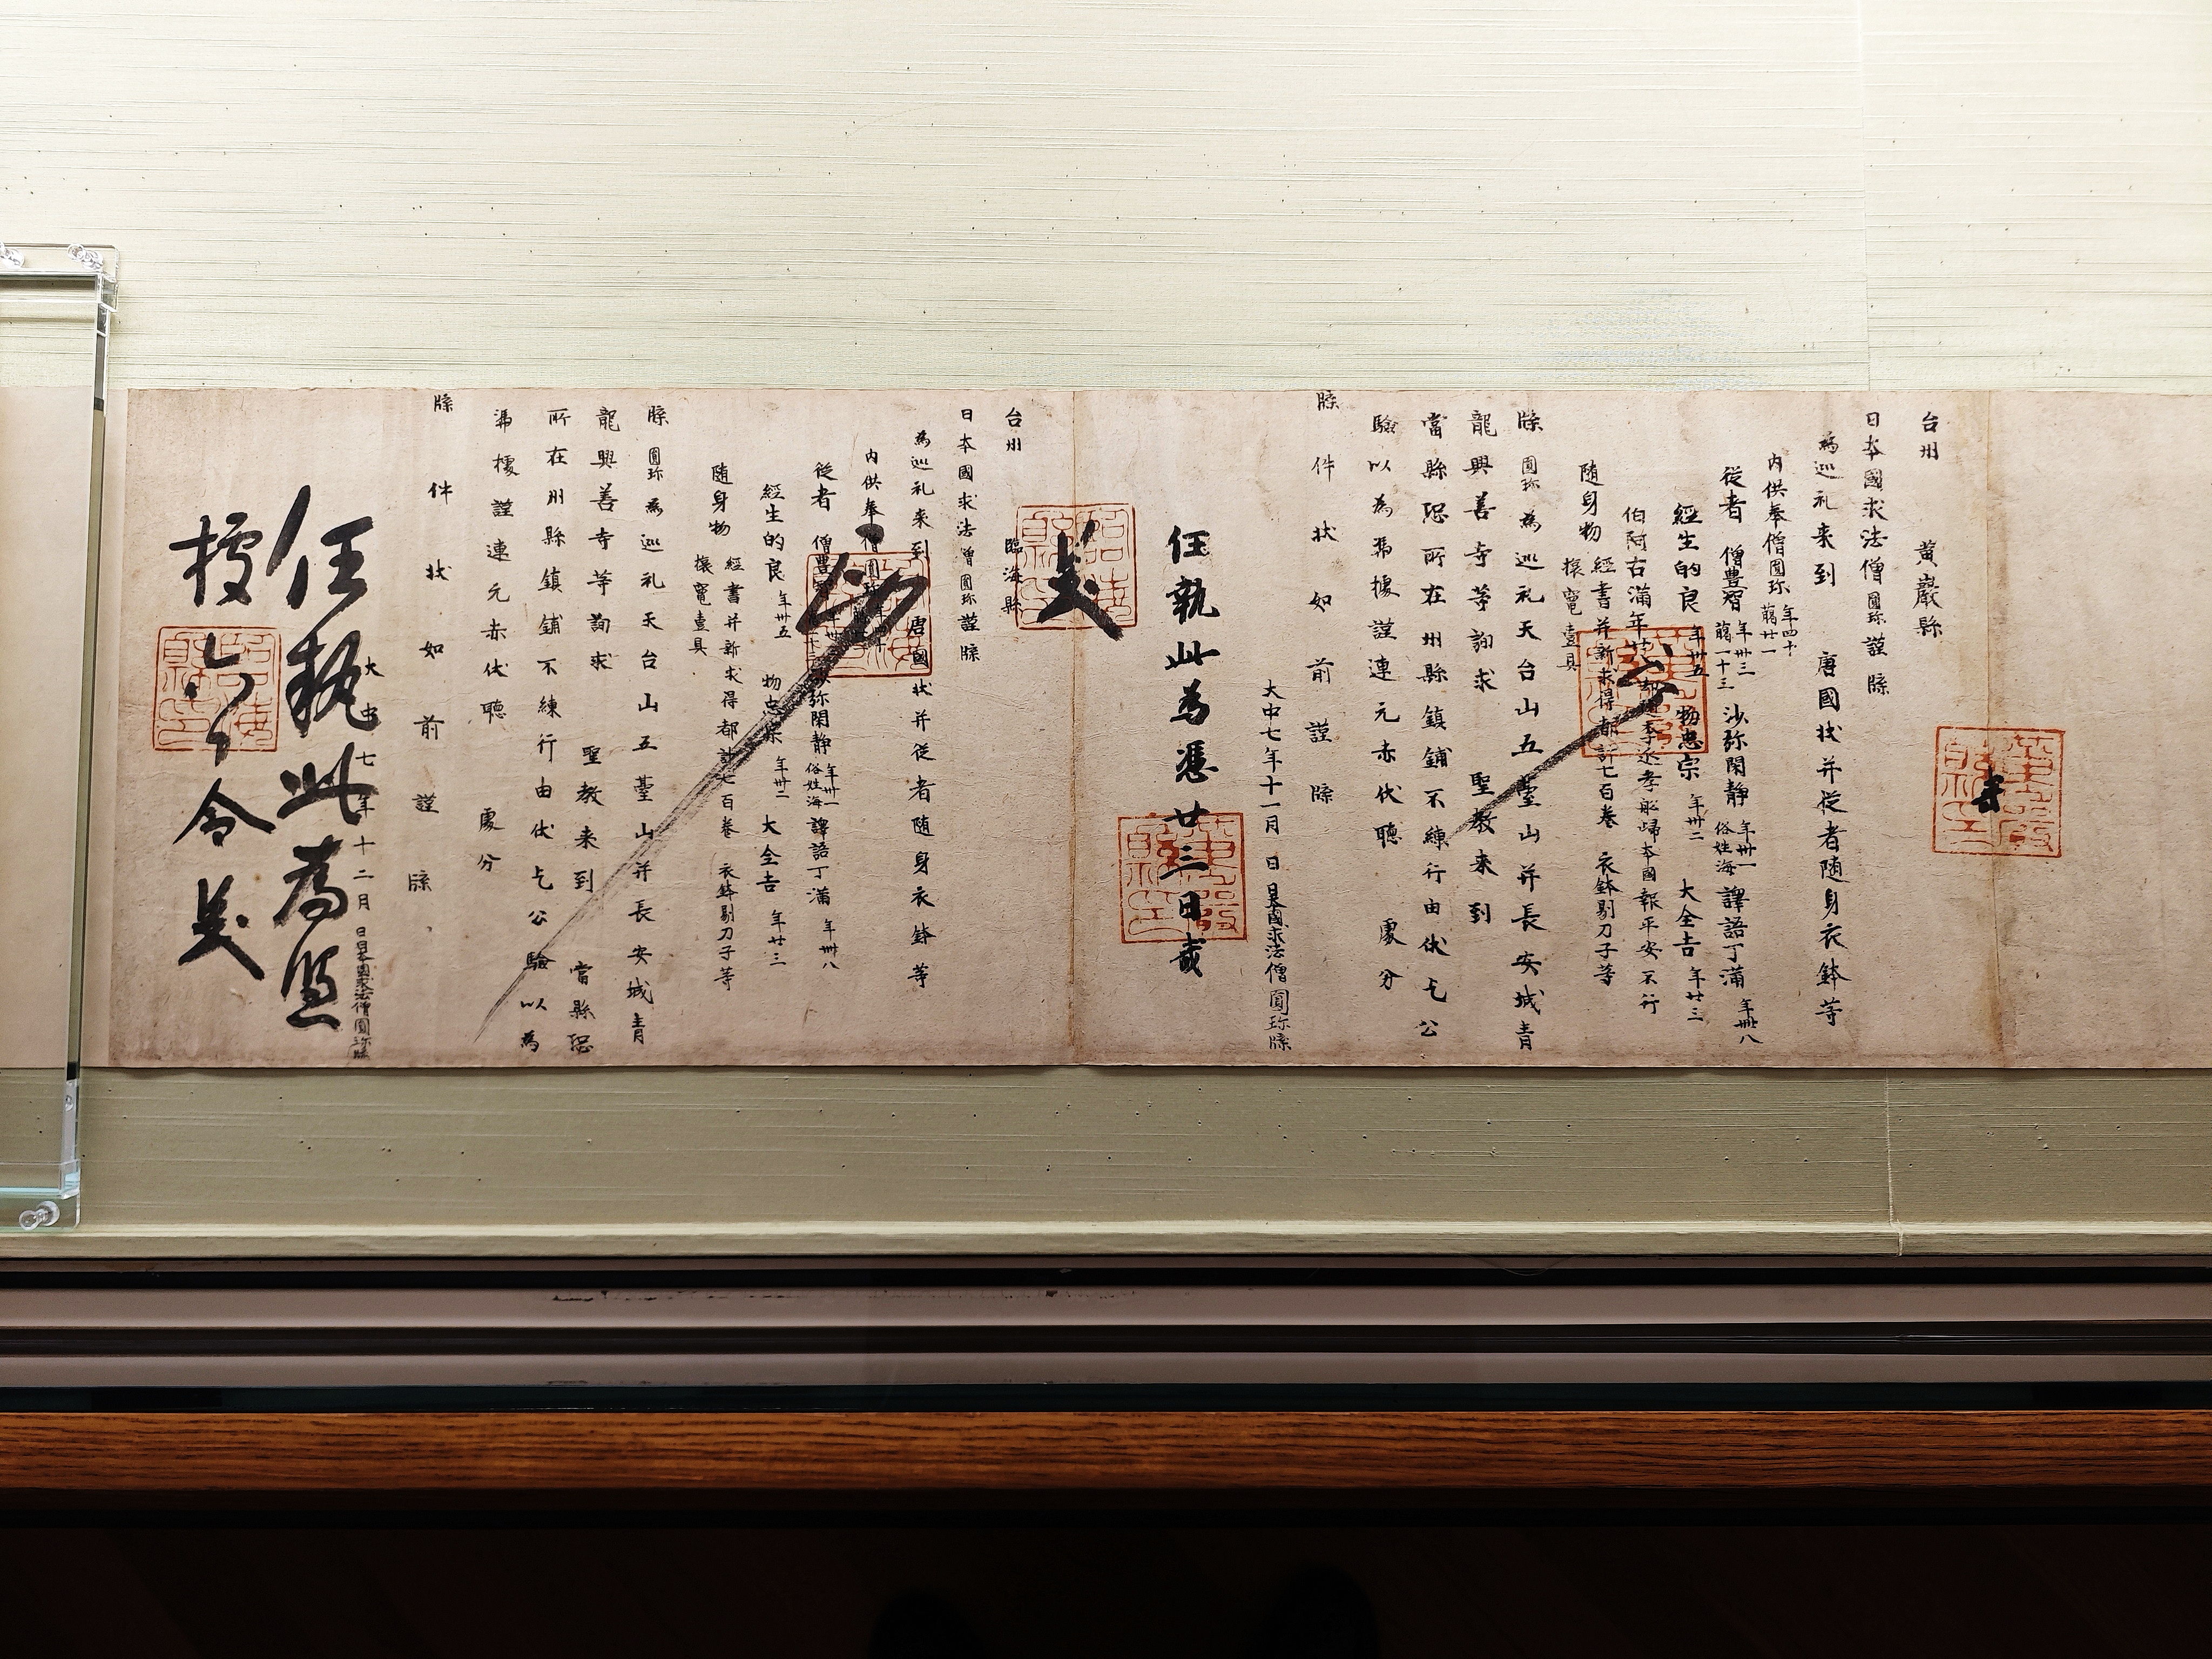 台州 黄巖縣
日本國求法僧圓珎謹牒
為巡礼来到 唐國状并従者随身衣鉢等
内供奉僧圓珎 年四十 﨟廿一
従者 僧豊智 年卅三 﨟一十三 沙弥閑静 年卅一 俗姓海 譯語丁滿 年卌八
經生的良 年卅五 物忠宗 年卅二 大全吉 年廿三
伯阿古滿年廿 李延孝舩歸本國報平安不行
随身物 經書并新求得都計七百卷 衣鉢剔刀子等
㯻竈壹具
牒圓珎為巡礼天台山五臺山并長安城青
龍興善寺等詢求 聖教来到
當縣恐所在州縣鎮鋪不練行由伏乞公
驗以為憑據謹連元赤伏聽 處分
牒件状如前謹牒
大中七年十一月 日日本國求法僧圓珎牒
任執此為憑廿三日
台州 臨海縣
日本國求法僧圓珎謹牒
為巡礼来到 唐國状并従者随身衣鉢等
内供奉僧圓珎
従者 僧豊智 沙弥閑静 年卅一 俗姓海 譯語丁滿 年卌八
經生的良 年卅五 物忠宗 年卅二 大全吉 年廿三
随身物 經書并新求得都計七百卷 衣鉢剔刀子等
㯻竈壹具
牒圓珎為巡礼天台山五臺山并長安城青
龍興善寺等詢求 聖教来到 當縣恐
所在州縣鎮鋪不練行由伏乞公驗以為
憑據謹連元赤伏聽 處分
牒件状如前謹牒
大中七年十二月 日日本國求法僧圓珎牒
任執此為憑
據 令